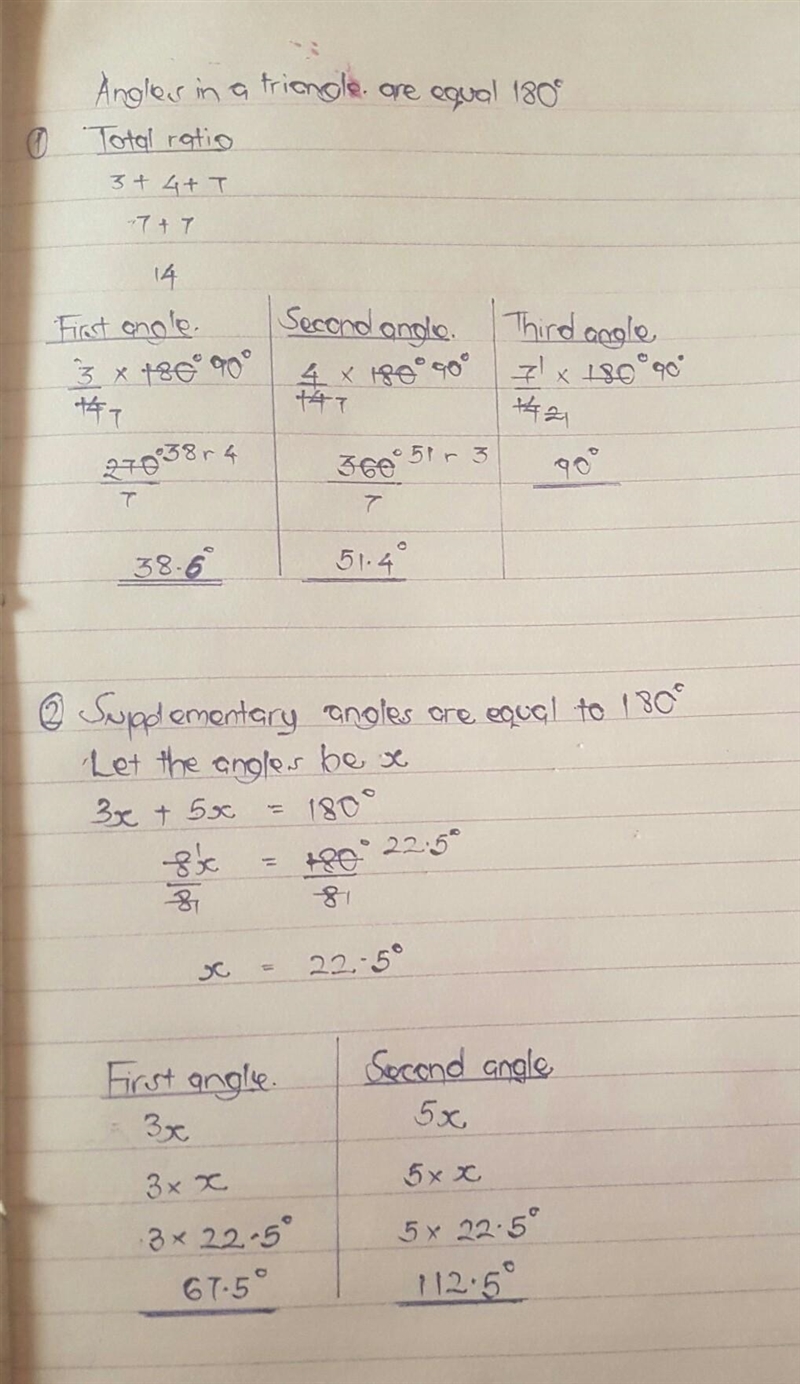 Angles in a triangle. are equal 180°
① Total ratio
3 + 4 + 7
7 + 7
14
First angle. Second angle. Third angle.
3/14 7 × 180° 90° 4/14 7 × 180° 90° 7 1/14 2 1 × 180° 90°
270°/7 38 r 4 360°/7 51 r 3 90°
38.6° 51.4°
② Supplementary angles are equal to 180°
Let the angles be x
3x + 5x = 180°
8 1x/8 1 = 180°/8 1 22.5°
x = 22.5°
First angle. Second angle
3x 5x
3 × x 5 × x
3 × 22.5° 5 × 22.5°
67.5° 112.5°